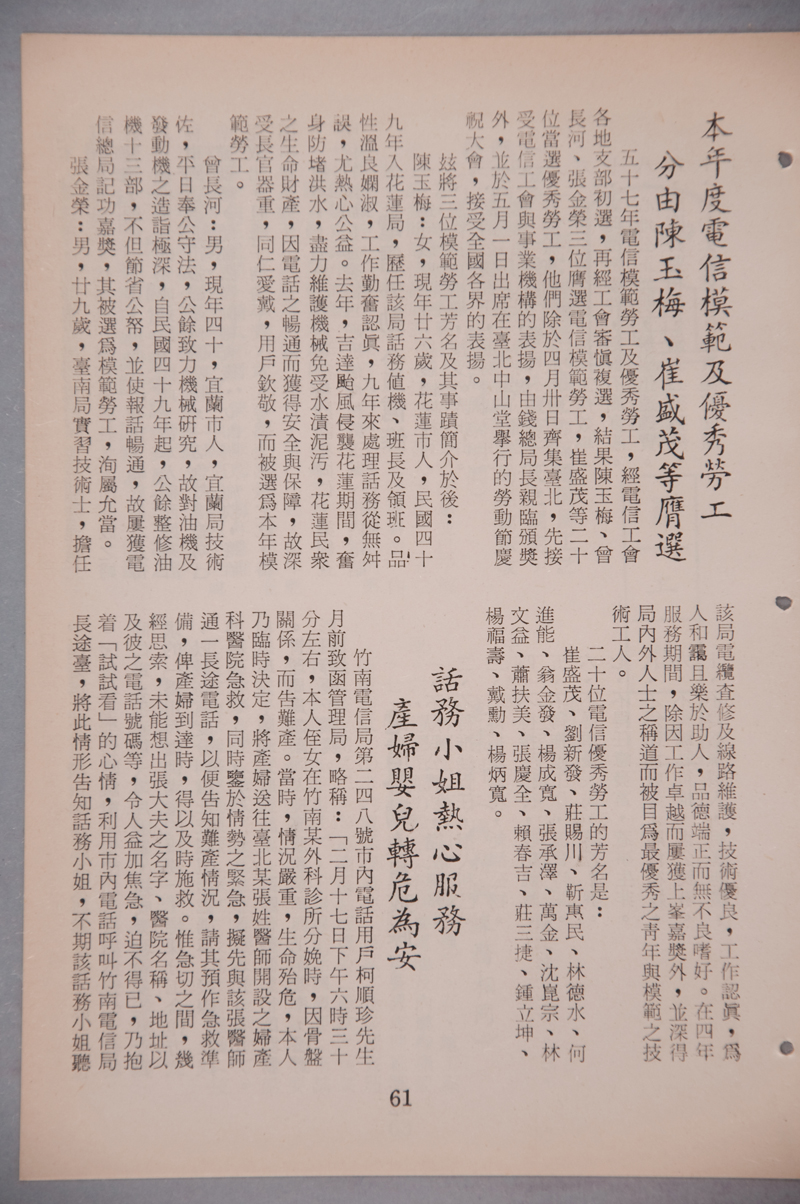 本年度電信模範及優秀勞工
分由陳玉梅、崔盛茂等膺選
五十七年電信模範勞工及優秀勞工，經電信工會
各地支部初選，再經工會審愼複選，結果陳玉梅、曾
長河、張金榮三位膺選電信模範勞工，崔盛茂等二十
位當選優秀勞工，他們除於四月卅日齊集臺北，先接
受電信工會與事業機構的表揚，由錢總局長親臨頒獎
外，並於五月一日出席在臺北中山堂舉行的勞動節慶
祝大會，接受全國各界的表揚。
玆將三位模範勞工芳名及其事蹟簡介於後：
陳玉梅：女，現年廿六歲，花蓮市人，民國四十
九年入花蓮局，歷任該局話務値機、班長及領班。品
性溫良嫻淑，工作勤奮認眞，九年來處理話務從無舛
誤，尤熱心公益。去年，吉達颱風侵襲花蓮期間，奮
身防堵洪水，盡力維護機械免受水漬泥汚，花蓮民衆
之生命財產，因電話之暢通而獲得安全與保障，故深
受長官器重，同仁愛戴，用戶欽敬，而被選爲本年模
範勞工。
曾長河：男，現年四十，宜蘭市人，宜蘭局技術
佐，平日奉公守法，公餘致力機械硏究，故對油機及
發動機之造詣極深，自民國四十九年起，公餘整修油
機十三部，不但節省公帑，並使報話暢通，故屢獲電
信總局記功嘉獎，其被選爲模範勞工，洵屬允當。
張金榮：男，廿九歲，臺南局實習技術士，擔任
該局電纜查修及線路維護，技術優良，工作認眞，爲
人和靄且樂於助人，品德端正而無不良嗜好。在四年
服務期間，除因工作卓越而屢獲上峯嘉獎外，並深得
局內外人士之稱道而被目爲最優秀之靑年與模範之技
術工人。
二十位電信優秀勞工的芳名是：
崔盛茂、劉新發、莊賜川、靳惠民、林德水、何
進能、翁金發、楊成寬、張承澤、萬金、沈崑宗、林
文益、蕭扶美、張慶全、賴春吉、莊三捷、鍾立坤、
楊福壽、戴勳、楊炳寬。
話務小姐熱心服務
產婦嬰兒轉危為安
竹南電信局第二四八號市內電話用戶柯順珍先生
月前致函管理局，略稱：「二月十七日下午六時三十
分左右，本人侄女在竹南某外科診所分娩時，因骨盤
關係，而告難產。當時，情況嚴重，生命殆危，本人
乃臨時決定，將產婦送往臺北某張姓醫師開設之婦產
科醫院急救，同時鑒於情勢之緊急，擬先與該張醫師
通一長途電話，以便告知難產情況，請其預作急救準
備，俾產婦到達時，得以及時施救。惟急切之間，幾
經思索，未能想出張大夫之名字、醫院名稱、地址以
及彼之電話號碼等，令人益加焦急，迫不得已，乃抱
着「試試看」的心情，利用市內電話呼叫竹南電信局
長途臺，將此情形告知話務小姐，不期該話務小姐聽
61